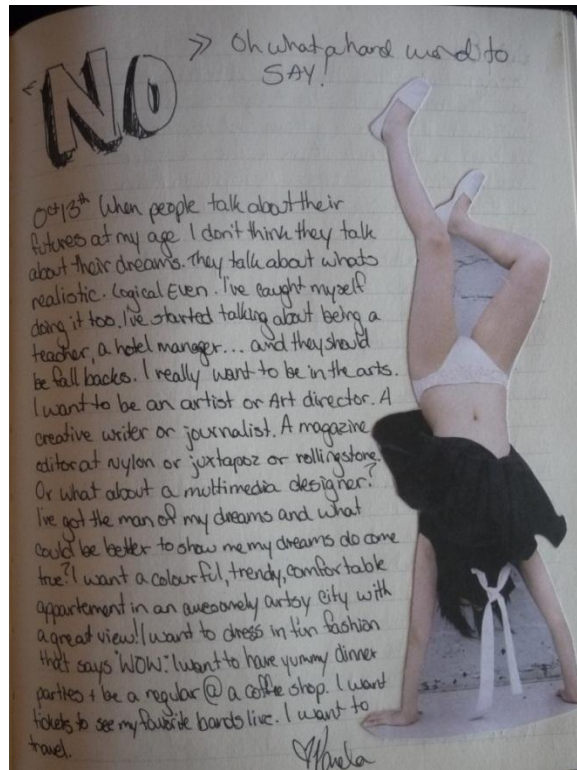 NO >> Oh what a hard word to
SAY!
Oct 13th When people talk about their
futures at my age I don't think they talk
about their dreams. They talk about whats
realistic. Logical Even. I've caught myself
doing it too. I've started talking about being a
teacher, a hotel manager... and they should
be fall backs. I really want to be in the arts.
I want to be an artist or Art director. A
creative writer or journalist. A magazine
editor at Nylon or juxtapoz or rollingstone.
Or what about a multimedia designer?
I've got the man of my dreams and what
could be better to show me my dreams do come
true? I want a colourful, trendy, comfortable
appartement in an awesomely artsy city with
a great view! I want to dress in fun fashion
that says "WOW." I want to have yummy dinner
parties + be a regular @ a coffee shop. I want
tickets to see my favorite bands live. I want to
travel.